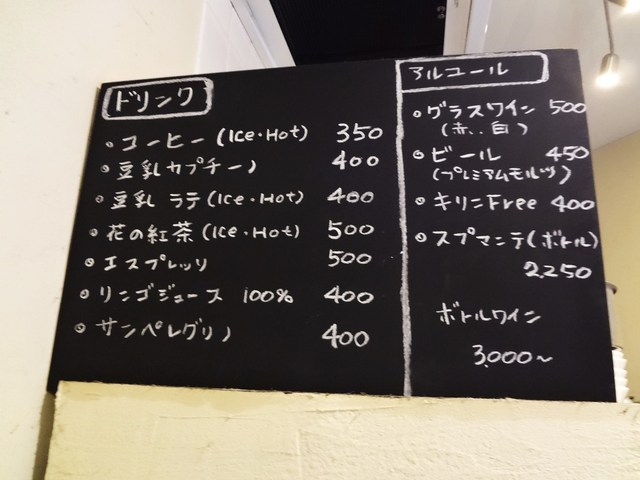 ドリンク
コーヒー (Ice・Hot) 350
豆乳カプチーノ 400
豆乳 ラテ (Ice・Hot) 400
花の紅茶 (Ice・Hot) 500
エスプレッソ 500
リンゴジュース 100% 400
サンペレグリノ 400
アルコール
グラスワイン 500
(赤、白)
ビール 450
(プレミアムモルツ)
キリンFree 400
スプマンテ(ボトル)
2,250
ボトルワイン
3,000~